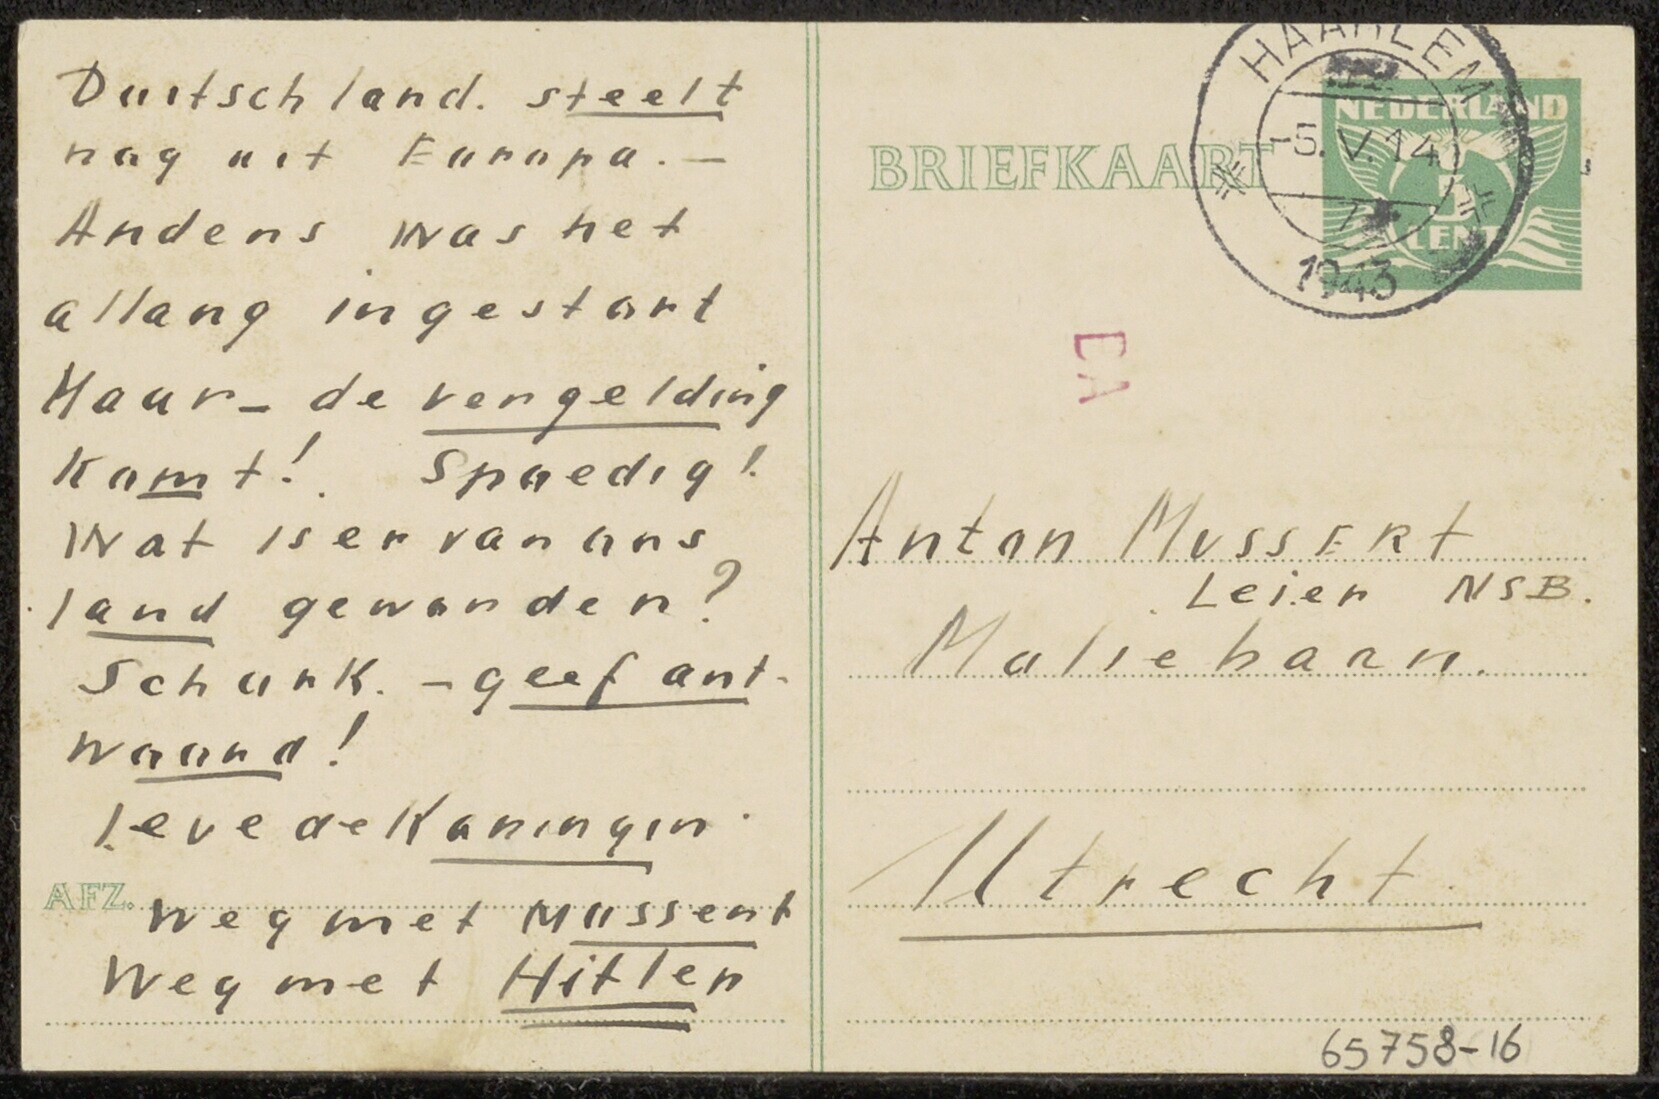 Duitschland. steelt
nog uit Europa. –
Anders was het
allang ingestort
Maar – de vergelding
komt! Spoedig!
Wat is er van ons
land geworden?
Schurk. – geef ant-
woord!
Leve de Koningin.
AFZ.
Weg met Mussert
Weg met Hitler
BRIEFKAART
HAARLEM
-5.V.14
1943
NEDERLAND
5
CENT
EA
Anton Mussert
Leier NSB.
Maliebaan.
Utrecht.
65758-16